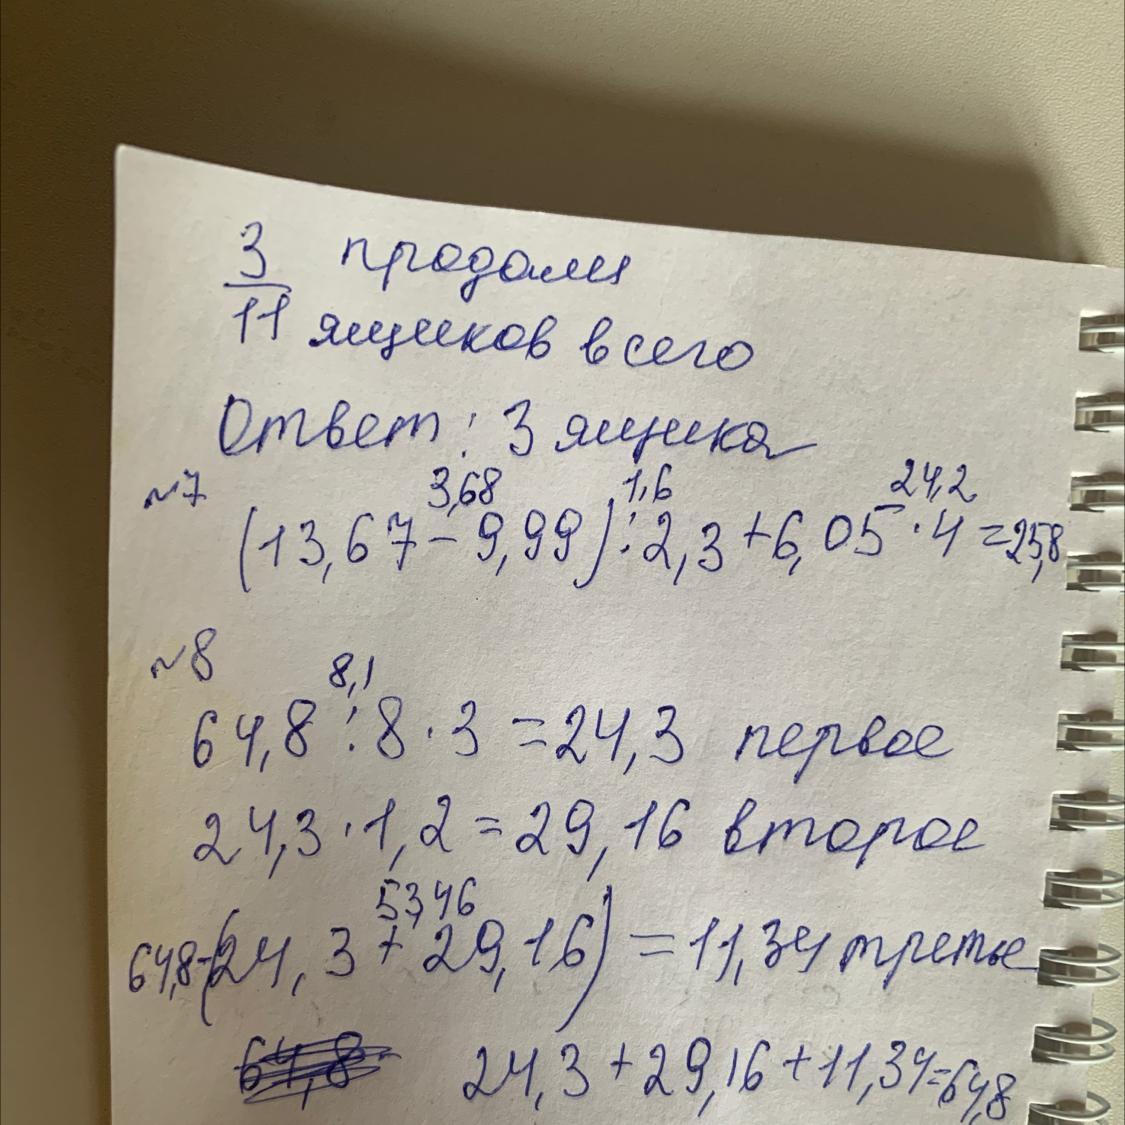 3 продали
11 ящиков всего
Ответ: 3 ящика
№7
3,68 1,6 24,2
(13,67-9,99):2,3+6,05·4=25,8
№8
8,1
64,8:8·3=24,3 первое
24,3·1,2=29,16 второе
53,46
64,8-(24,3+29,16)=11,34 третье
64,8- 24,3+29,16+11,34=64,8